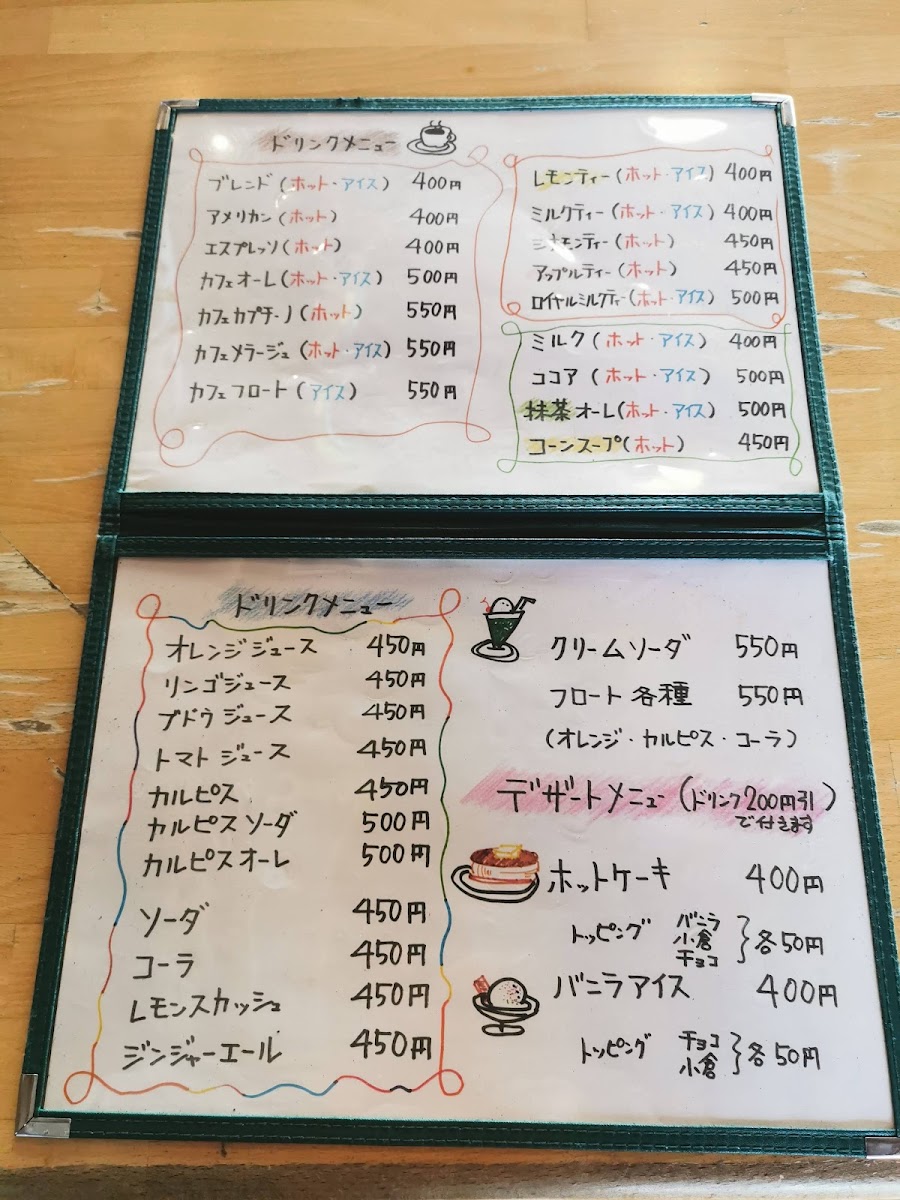 ドリンクメニュー
ブレンド(ホット・アイス) 400円
アメリカン(ホット) 400円
エスプレッソ(ホット) 400円
カフェオーレ(ホット・アイス) 500円
カフェカプチーノ(ホット) 550円
カフェメラージュ(ホット・アイス) 550円
カフェフロート(アイス) 550円
レモンティー(ホット・アイス) 400円
ミルクティー(ホット・アイス) 400円
シナモンティー(ホット) 450円
アップルティー(ホット) 450円
ロイヤルミルクティー(ホット・アイス) 500円
ミルク(ホット・アイス) 400円
ココア(ホット・アイス) 500円
抹茶オーレ(ホット・アイス) 500円
コーンスープ(ホット) 450円
ドリンクメニュー
オレンジジュース 450円
リンゴジュース 450円
ブドウジュース 450円
トマトジュース 450円
カルピス 450円
カルピスソーダ 500円
カルピスオーレ 500円
ソーダ 450円
コーラ 450円
レモンスカッシュ 450円
ジンジャーエール 450円
クリームソーダ 550円
フロート各種 550円
(オレンジ・カルピス・コーラ)
デザートメニュー(ドリンク200円引)
で付きます
ホットケーキ 400円
トッピング バニラ
小倉 各50円
チョコ
バニラアイス 400円
トッピング チョコ 各50円
小倉